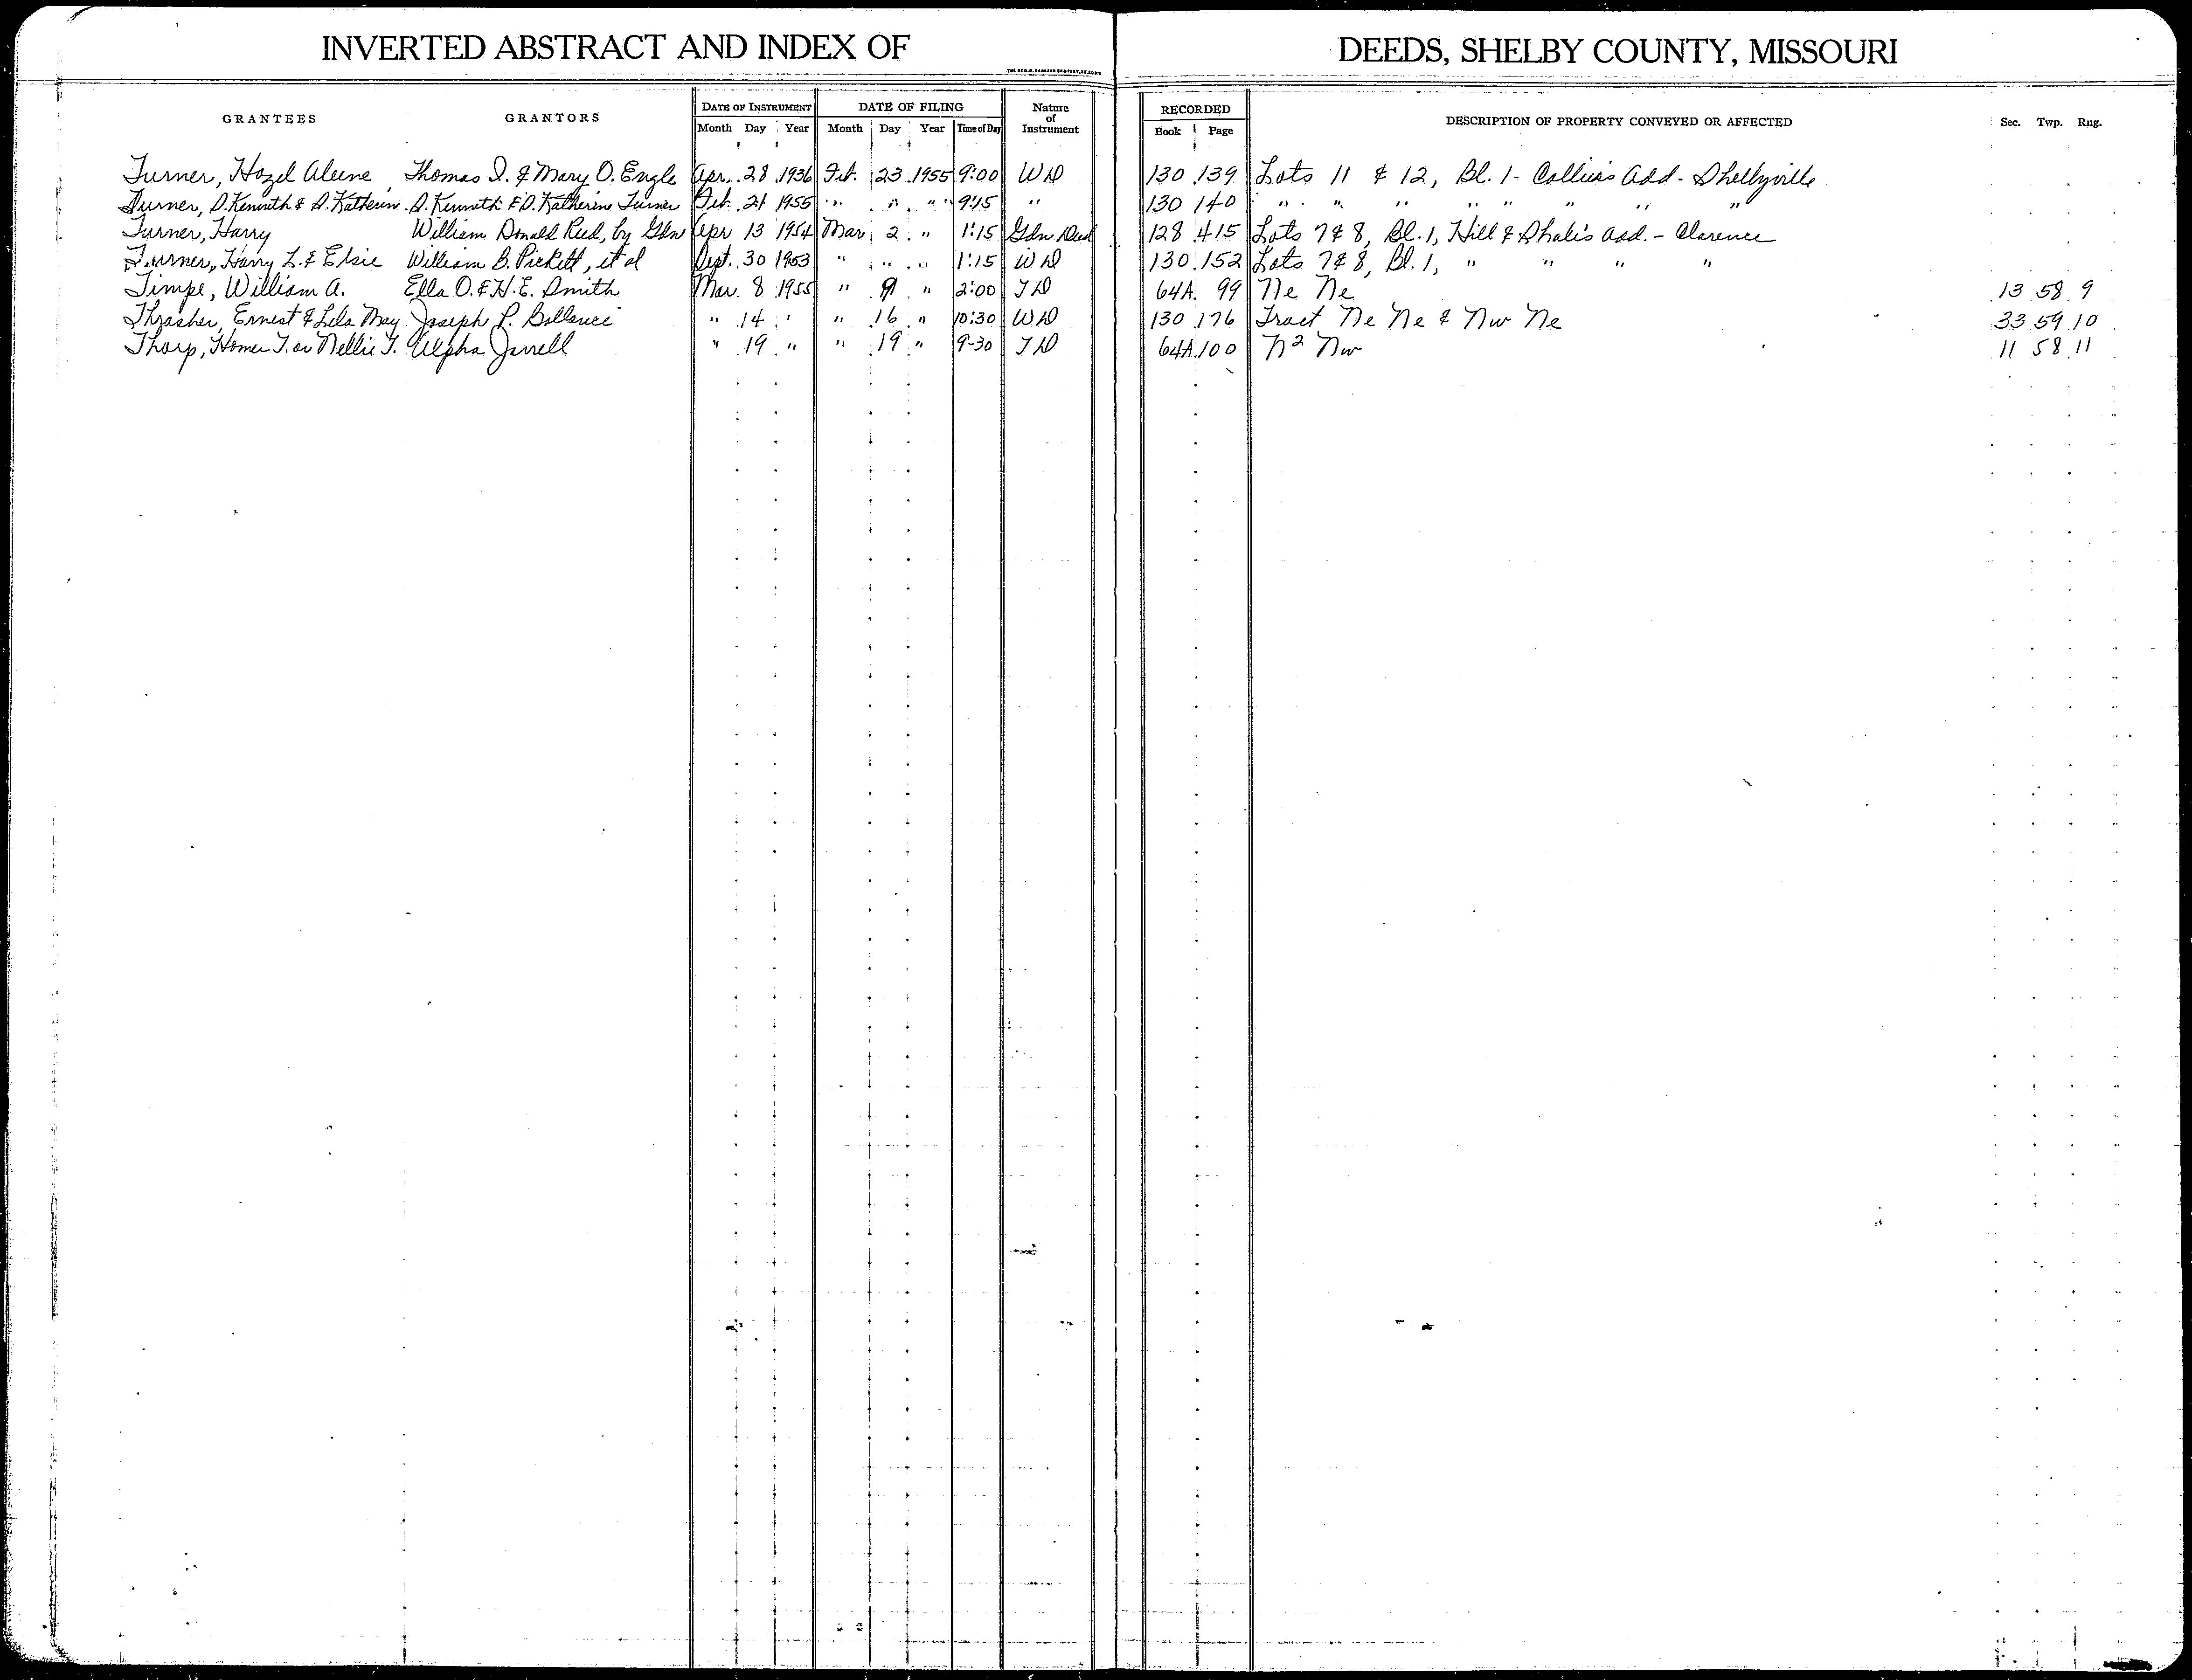 INVERTED ABSTRACT AND INDEX OF DEEDS, SHELBY COUNTY, MISSOURI
GRANTEES GRANTORS DATE OF INSTRUMENT DATE OF FILING Nature of Instrument RECORDED DESCRIPTION OF PROPERTY CONVEYED OR AFFECTED Sec. Twp. Rng.
Month Day Year Month Day Year Time of Day Book Page
Turner, Hazel Aleene Thomas I. & Mary O. Engle Apr. 28 1936 Feb. 23 1955 9:00 WD 130 139 Lots 11 & 12, Bl. 1 - Collier's Add - Shelbyville
Turner, D. Kenneth & D. Katherin D. Kenneth & D. Katherine Turner Feb. 21 1955 " " " 9:15 " 130 140 " " " " " " " "
Turner, Harry William Donald Reed, by Gdn Apr 13 1954 Mar. 2 " 1:15 Gdn Deed 128 415 Lots 7 & 8, Bl. 1, Hill & Add. - Clarence
Turner, Harry L. & Elsie William B. Pickett, et al Sept. 30 1953 " " " 1:15 WD 130 152 Lots 7 & 8, Bl. 1, " " " "
Timpe, William A. Ella O. & H. E. Smith Mar. 8 1955 " 9 " 2:00 TD 64A 99 Ne Ne 13 58 9
Thrasher, Ernest & Lela May Joseph P. Ballance " 14 " " 16 " 10:30 WD 130 176 Tract Ne Ne & Nw Ne 33 59 10
Thorp, Homer T. or Nellie T. Alpha Jarrell " 19 " " 19 " 9-30 TD 64A 100 N2 Nw 11 58 11